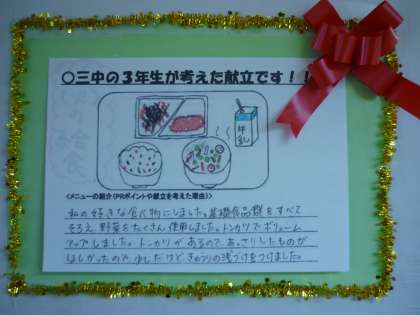 〇三中の3年生が考えた献立です！！
牛乳
<メニューの紹介（PRポイントや献立を考えた理由）>
私の好きな食べ物にしました。基礎食品群をすべて
そろえ、野菜をたくさん使用しました。トンカツでボリューム
アップしました。トンカツがあるので、あっさりしたものが
ほしかったので、少しだけどきゅうりの浅づけをつけました。